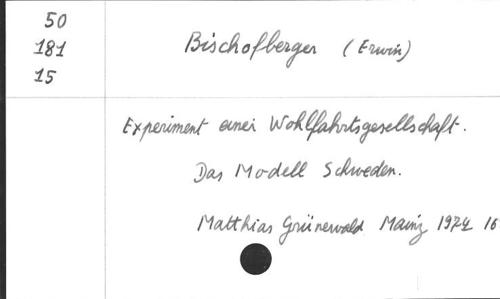 50
181
15
Bischofberger (Erwin)
Experiment einer Wohlfahrtsgesellschaft.
Das Modell Schweden.
Matthias Grünewald Mainz 1974 16